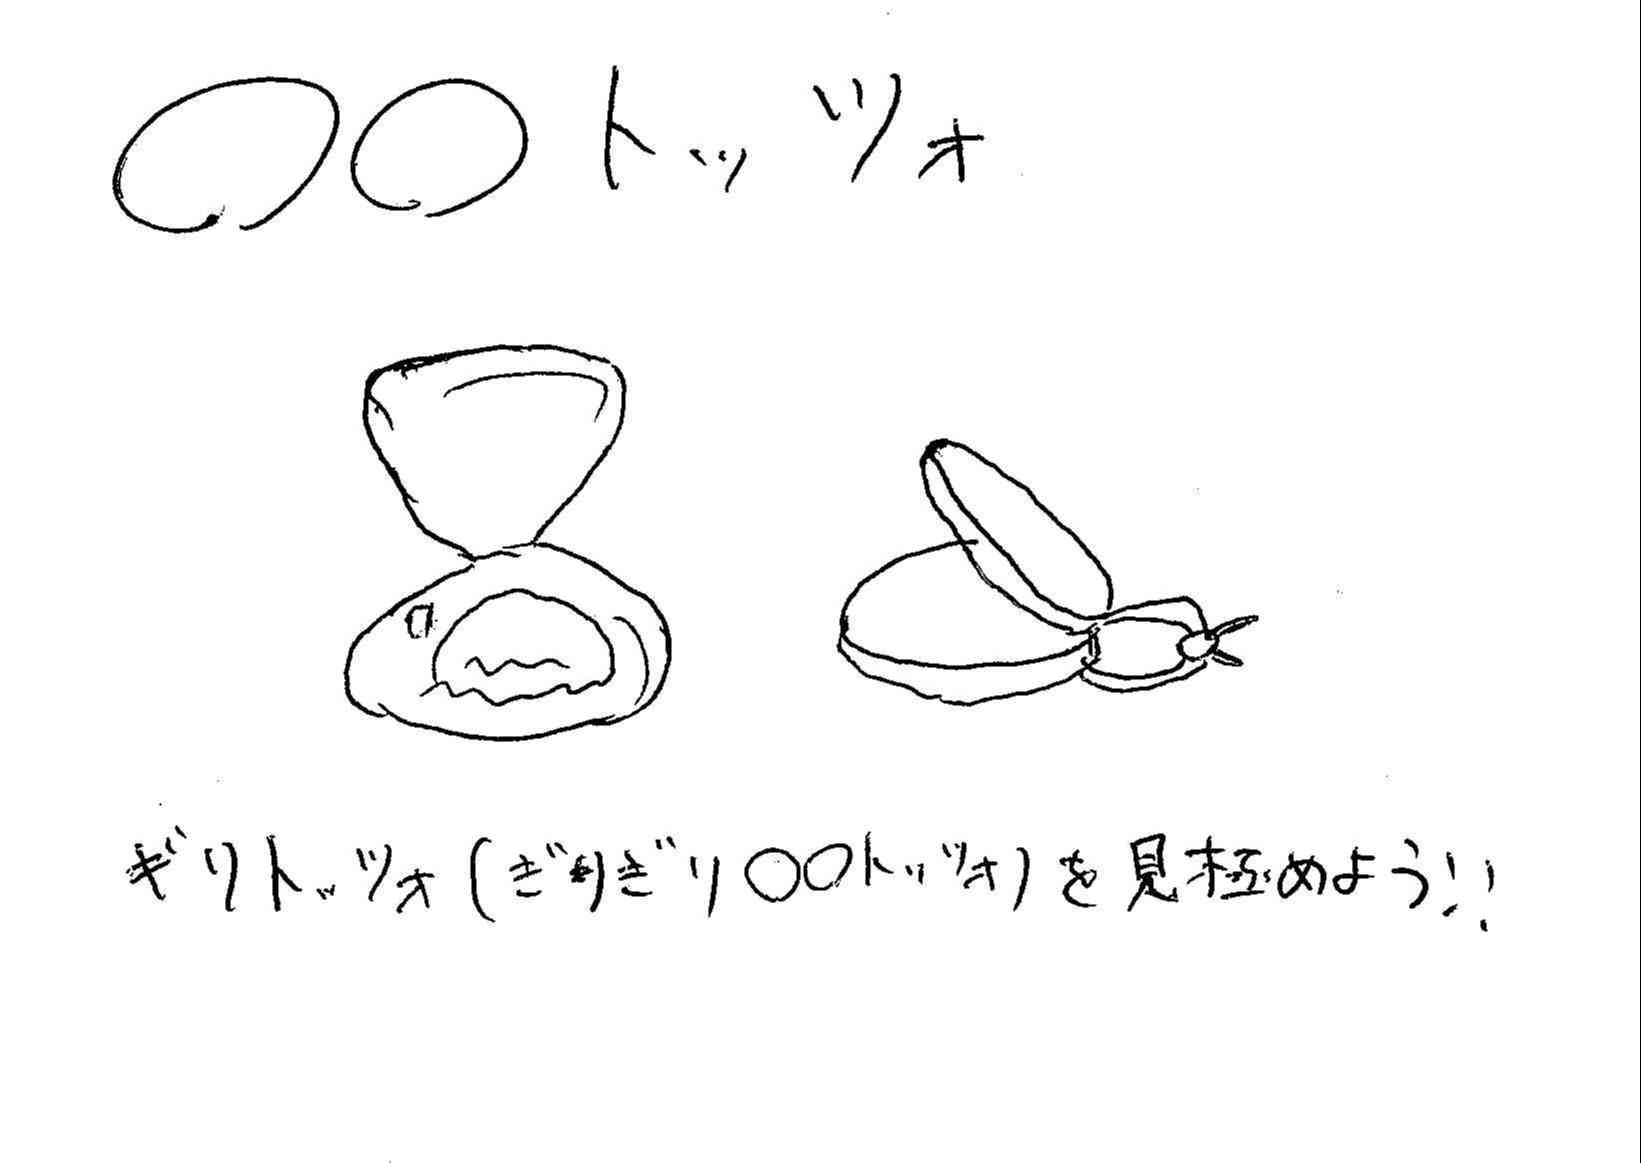 〇〇トッツォ
ギリトッツォ(ぎりぎり〇〇トッツォ)を見極めよう!!